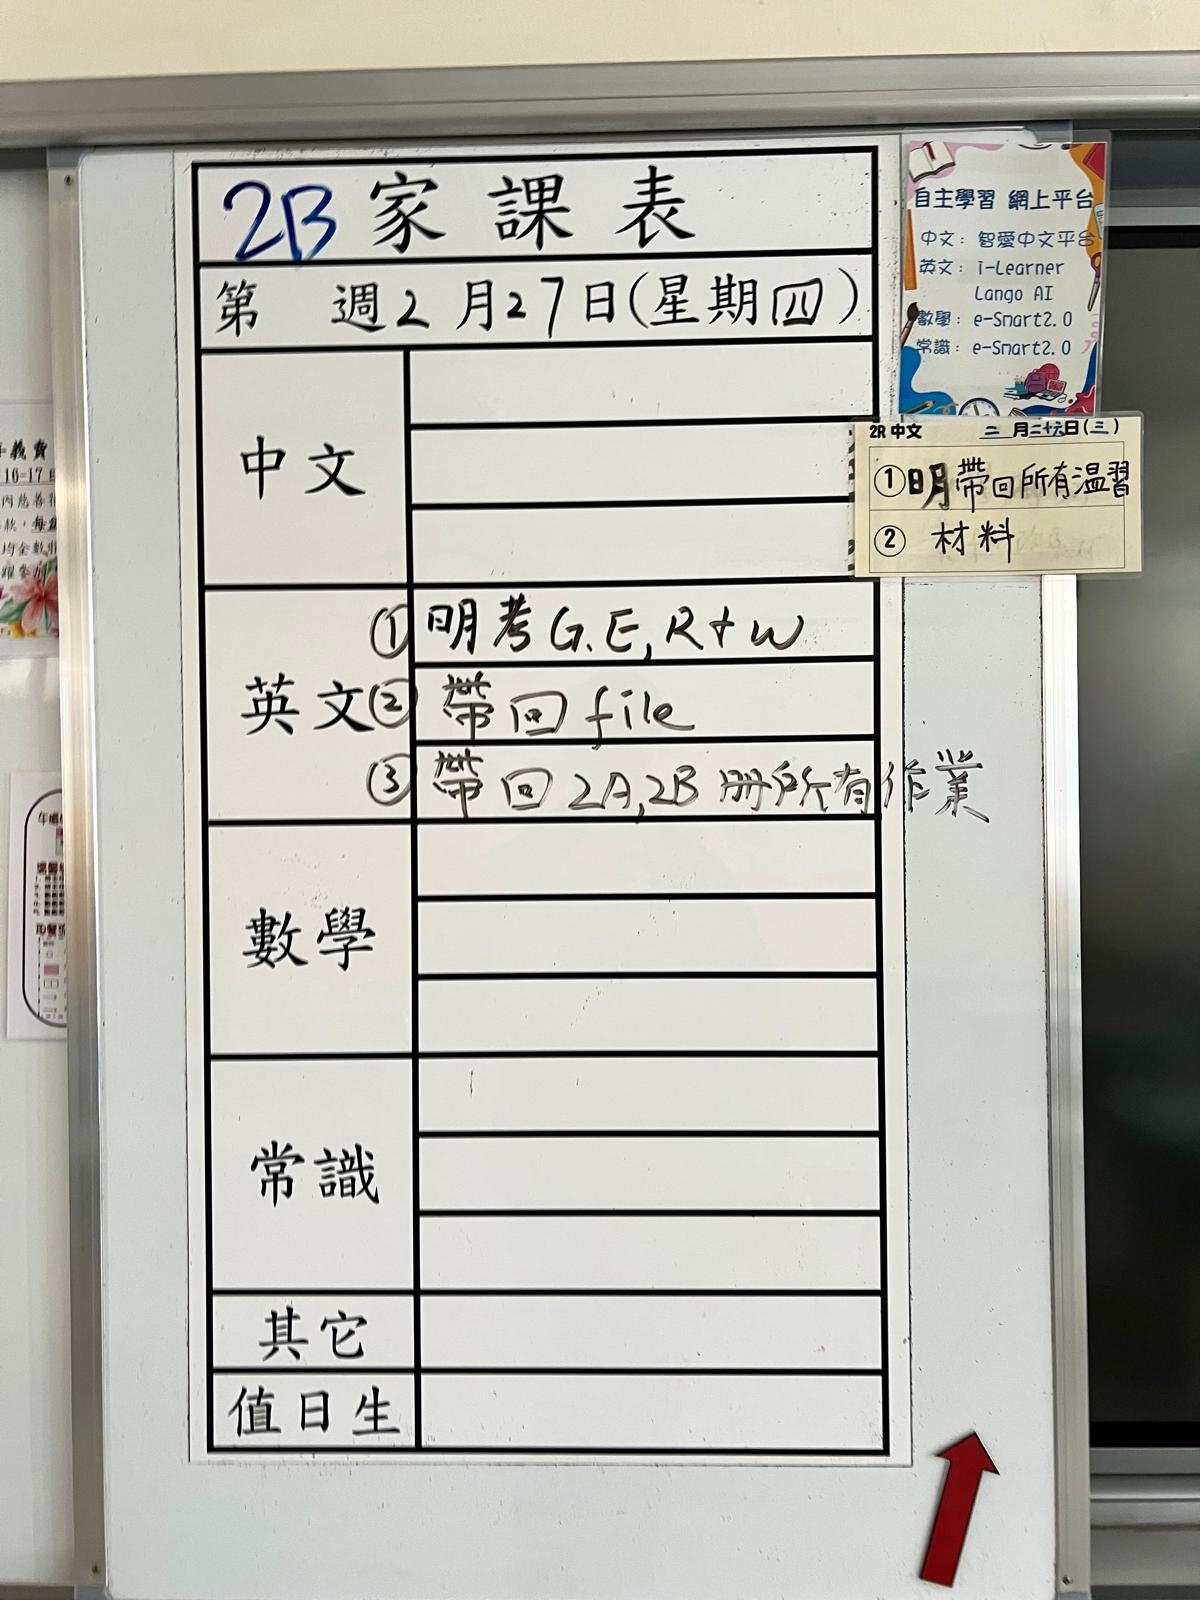 2B 家課表
第 週2月27日(星期四)
中文
英文
①明考G.E,R+W
②帶回file
③帶回2A,2B冊所有作業
數學
常識
其它
值日生
自主學習 網上平台
中文：智愛中文平台
英文：i-Learner
Lango AI
數學：e-Smart2.0
常識：e-Smart2.0
2R 中文 二月二十六日(三)
①明帶回所有温習
② 材料
義賣
16-17日
內慈善
款，每
均全數